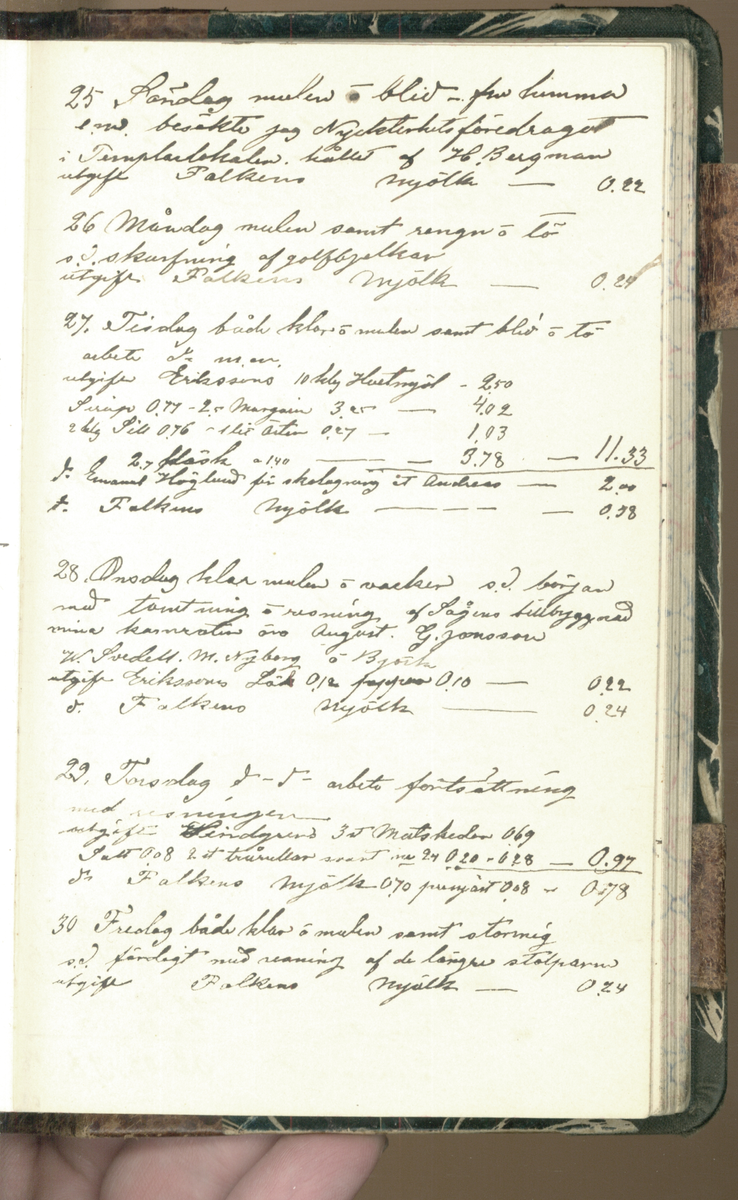 25 Söndag mulen o blid – fm himma
e.m. besökte jag Nykterhetsföredraget
i Templarlokalen. hållet af H. Bergman
utgift Falkens Mjölk — 0.22
26 Måndag mulen samt rengn o tö
s.d. skarfning af golfbjelkar
utgift Falkens Mjölk 0.24
27. Tisdag både klar o mulen samt blid o tö
arbete d:o m.m.
utgift Erikssons 10 kilog Hvetmjöl – 2.50
Sirap 0.77 – 2.5 Margarin 3.25 — 4.02
2 kilog Sill 0.76 – 1 lit Ärter 0.27 — 1.03
2.7 fläsk a 1.40 — 3.78 — 11.33
d:o Emanuel Höglund för skolagning åt Andreas — 2.00
d:o Falkens Mjölk — 0.38
28. Onsdag klar mulen o vacker s.d. början
med tomtning o resning af Sågens tillbyggnad
mina kamrater äro August. G. Jonsson
W. Svedell. M. Nyberg o Björk
utgift Erikssons Lök 0.12 peppar 0.10 — 0.22
d. Falkens Mjölk — 0.24
29. Torsdag d:o – d:o – arbete fortsättning
med resningen
utgift Lindgrens 3 st Matskedar 0.69
Salt 0.08 2 st trårullar svart no 24 0.20 – 0.28 — 0.97
d:o Falkens Mjölk 0.70 prenjäst 0.08 – 0.78
30 Fredag både klar o mulen samt stormig
s.d. färdigt med resning af de längre stolparne
utgift Falkens Mjölk — 0.24